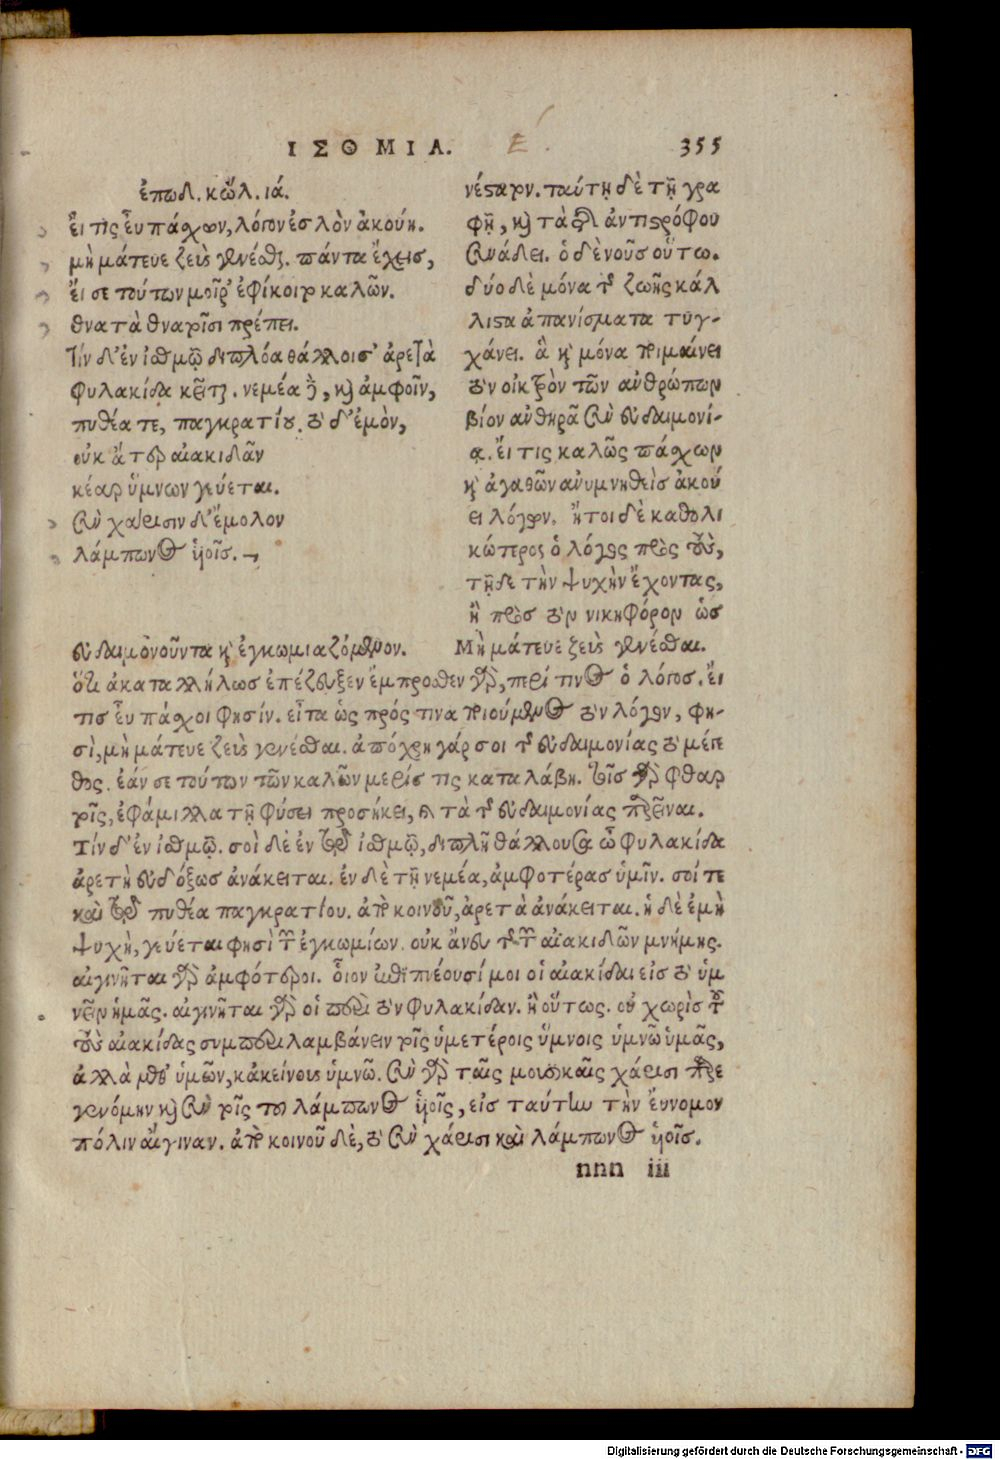 ΙΣΘΜΙΑ. Ε. 355
ἐπωδ. κώλ. ιά.
εἴ τις εὖ πάσχων, λόγον ἐσλὸν ἀκούῃ.
μὴ μάτευε ζεὺς γενέσθαι. πάντα ἔχεις,
εἴ σε τούτων μοῖρ' ἐφίκοιτο καλῶν.
θνατὰ θνατοῖσι πρέπει.
Τὶν δ' ἐν ἰσθμῷ διπλόα θάλλοισ' ἀρετὰ
φυλακίδα κεῖται. νεμέᾳ δὲ, καὶ ἀμφοῖν,
πυθέᾳ τε, παγκρατίου. τὸ δ' ἐμὸν,
οὐκ ἄτερ αἰακιδᾶν
κέαρ ὕμνων γεύεται.
σὺν χάρισιν δ' ἔμολον
λάμπωνος υἱοῖς.
νέσταρον. ταύτῃ δὲ τῇ γρα
φῇ, καὶ τὰ τῆς ἀντιστρόφου
συνάδει. ὁ δὲ νοῦς οὕτω.
δύο δὲ μόνα τῆς ζωῆς κάλ
λιστα ἀπανίσματα τυγ-
χάνει. ἃ καὶ μόνα ποιμαίνει
τὸν οἰκτρὸν τῶν ἀνθρώπων
βίον ἀνθηρᾷ σὺν εὐδαιμονί-
ᾳ. εἴ τις καλῶς πάσχων
καὶ ἀγαθῶν ἀνυμνηθεὶς ἀκού
ει λόγων. ἤτοι δὲ καθολι
κώτερος ὁ λόγος πρὸς τοὺς,
τῇδε τὴν ψυχὴν ἔχοντας,
ἢ πρὸς τὸν νικηφόρον ὡς
εὐδαιμονοῦντα καὶ ἐγκωμιαζόμενον. Μὴ μάτευε ζεὺς γενέσθαι.
ὅτι ἀκαταλλήλως ἐπέζευξεν ἔμπροσθεν γὰρ, περί τινος ὁ λόγος. εἴ
τις εὖ πάσχοι φησίν. εἶτα ὡς πρός τινα ποιούμενος τὸν λόγον, φη-
σὶ, μὴ μάτευε ζεὺς γενέσθαι. ἀπόχρη γάρ σοι τῆς εὐδαιμονίας τὸ μέγε
θος. ἐάν σε τούτων τῶν καλῶν μερίς τις καταλάβῃ. τοῖς γὰρ φθαρ
τοῖς, ἐφάμιλλα τῇ φύσει προσήκει, καὶ τὰ τῆς εὐδαιμονίας παρεῖναι.
Τὶν δ' ἐν ἰσθμῷ. σοὶ δὲ ἐν τῷ ἰσθμῷ, διπλῇ θάλλουσα ὦ φυλακίδα
ἀρετὴ εὐδόξως ἀνάκειται. ἐν δὲ τῇ νεμέᾳ, ἀμφοτέρας ὑμῖν. σοί τε
καὶ τῷ πυθέᾳ παγκρατίου. ἀπὸ κοινοῦ, ἀρετὰ ἀνάκειται. ἡ δὲ ἐμὴ
ψυχὴ, γεύεται φησὶ τῶν ἐγκωμίων. οὐκ ἄνευ τῆς τῶν αἰακιδῶν μνήμης.
αἰγινῆται γὰρ ἀμφότεροι. οἷον ὠθὶ πνέουσί μοι οἱ αἰακίδαι εἰς τὸ ὑμ
νεῖν ἡμᾶς. αἰγινῆται γὰρ οἱ περὶ τὸν φυλακίδαν. ἢ οὕτως. οὐ χωρὶς τοῦ
τοὺς αἰακίδας συμπεριλαμβάνειν τοῖς ὑμετέροις ὕμνοις ὑμνῶ ὑμᾶς,
ἀλλὰ μεθ' ὑμῶν, κἀκείνους ὑμνῶ. σὺν γὰρ ταῖς μουσικαῖς χάρισι παρε
γενόμην καὶ σὺν τοῖς τοῦ λάμπωνος υἱοῖς, εἰς ταύτην τὴν εὔνομον
πόλιν αἴγιναν. ἀπὸ κοινοῦ δὲ, τὸ σὺν χάρισι καὶ λάμπωνος υἱοῖς.
nnn iii
Digitalisierung gefördert durch die Deutsche Forschungsgemeinschaft - DFG